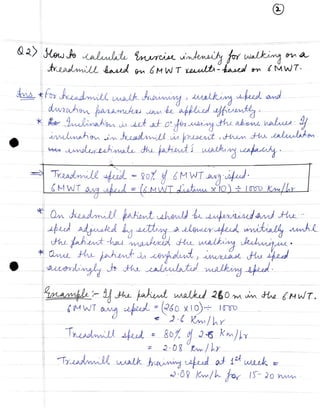 ②
Q2) How to calculate Exercise intensity for walking on a
treadmill based on 6MWT results - based on 6MWT.
Ans * For treadmill walk training, walking speed and
duration parameters can be applied efficiently.
* Inclination is set at 0° for using the above values. If
inclination in treadmill is present then the calculation
underestimate the patient's walking capacity.
⇒ Treadmill speed - 80% of 6MWT avg speed.
6MWT avg speed = (6MWT distance x 10) ÷ 1000 Km/hr
* On treadmill patient should be supervised and the
speed adjusted by setting a slower speed initially until
the patient has mastered the walking technique.
* Once the patient is confident, increase the speed
accordingly to the calculated walking speed.
Example :- If the patient walked 260 m in the 6MWT.
6MWT avg speed = (260 x 10) ÷ 1000
= 2.6 Km/hr
Treadmill speed = 80% of 2.6 Km/hr
= 2.08 Km/hr
Treadmill walk training speed at 1st week =
2.08 Km/h for 15-20 min.